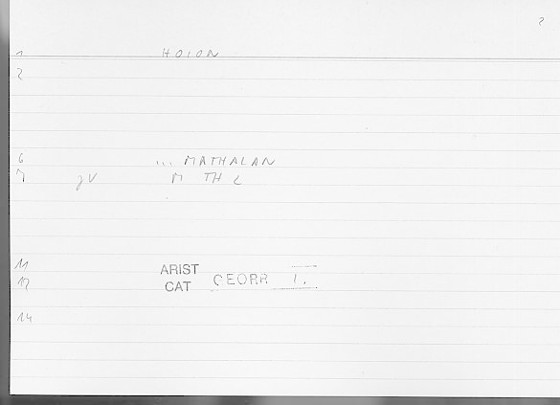 ?
1 HOION
2
6 ... MATHALAN
7 gV M TH L
11 ARIST
12 CAT GEORR I.
14